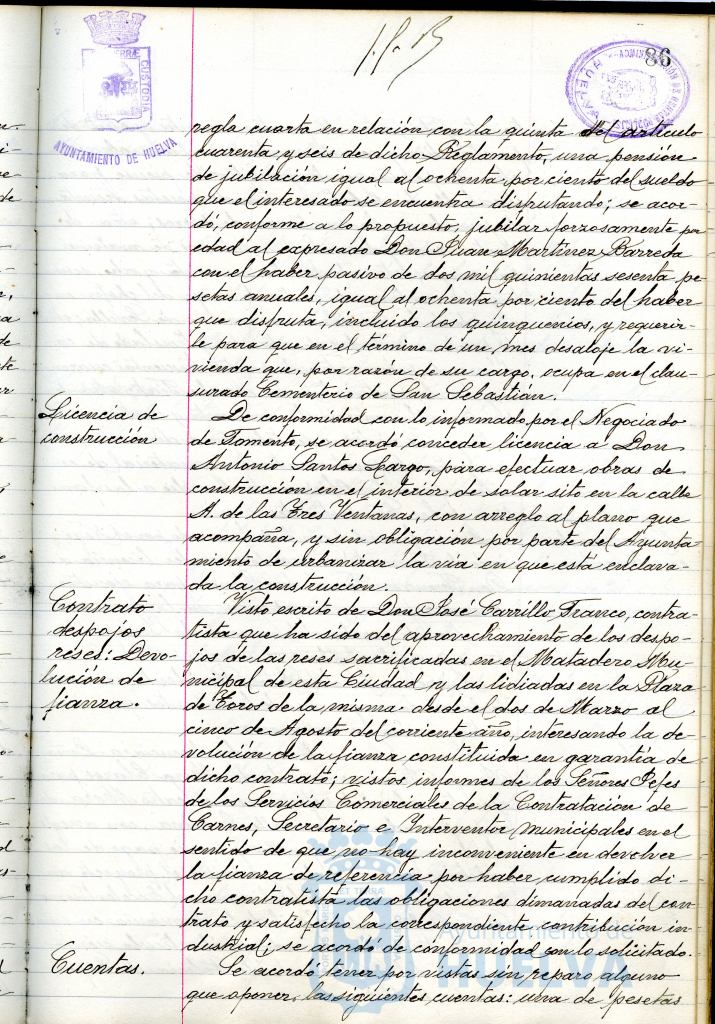 86
CUSTODIA
AYUNTAMIENTO DE HUELVA
regla cuarta en relación con la quinta del artículo
cuarenta y seis de dicho Reglamento, una pensión
de jubilación igual al ochenta por ciento del sueldo
que el interesado se encuentra disfrutando; se acor-
dó, conforme a lo propuesto, jubilar forzosamente por
edad al expresado Don Juan Martínez Barreda
con el haber pasivo de dos mil quinientas sesenta pe-
setas anuales, igual al ochenta por ciento del haber
que disfruta, incluido los quinquenios, y requerir-
le para que en el término de un mes desaloje la vi-
vienda que, por razón de su cargo, ocupa en el clau-
surado Cementerio de San Sebastián.
Licencia de
construcción
De conformidad con lo informado por el Negociado
de Fomento, se acordó conceder licencia a Don
Antonio Santos Largo, para efectuar obras de
construcción en el interior de solar sito en la calle
A. de las Tres Ventanas, con arreglo al plano que
acompaña, y sin obligación por parte del Ayunta-
miento de urbanizar la vía en que está enclava-
da la construcción.
Contrato
despojos
reses: Devo-
lución de
fianza.
Visto escrito de Don José Carrillo Franco, contra-
tista que ha sido del aprovechamiento de los despo-
jos de las reses sacrificadas en el Matadero Mu-
nicipal de esta Ciudad y las lidiadas en la Plaza
de Toros de la misma desde el dos de Marzo al
cinco de Agosto del corriente año, interesando la de-
volución de la fianza constituida en garantía de
dicho contrato; vistos informes de los Señores Jefes
de los Servicios Comerciales de la Contratación de
Carnes, Secretario e Interventor municipales en el
sentido de que no hay inconveniente en devolver
la fianza de referencia por haber cumplido di-
cho contratista las obligaciones dimanadas del con-
trato y satisfecho la correspondiente contribución in-
dustrial; se acordó de conformidad con lo solicitado.
Cuentas.
Se acordó tener por vistas sin reparo alguno
que oponer, las siguientes cuentas: una de pesetas
Ayuntamiento de